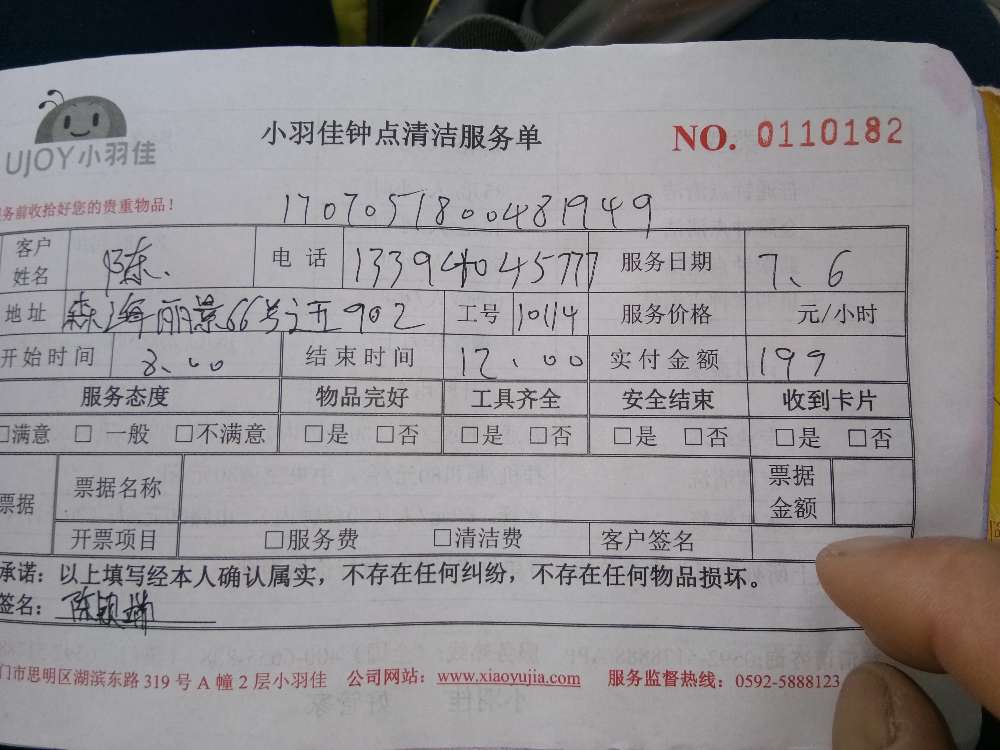 UJOY小羽佳
小羽佳钟点清洁服务单 NO. 0110182
务前收拾好您的贵重物品！
1707051800481949
客户姓名 陈、 电话 13394045777 服务日期 7、6
地址 森海丽景66号之五902 工号 10114 服务价格 元/小时
开始时间 8:00 结束时间 12:00 实付金额 199
服务态度 物品完好 工具齐全 安全结束 收到卡片
□满意 □ 一般 □不满意 □是 □否 □是 □否 □是 □否 □是 □否
票据 票据名称 票据金额
开票项目 □服务费 □清洁费 客户签名
承诺：以上填写经本人确认属实，不存在任何纠纷，不存在任何物品损坏。
签名：陈颖瑞
门市思明区湖滨东路 319 号 A 幢 2 层小羽佳 公司网站：www.xiaoyujia.com 服务监督热线：0592-5888123